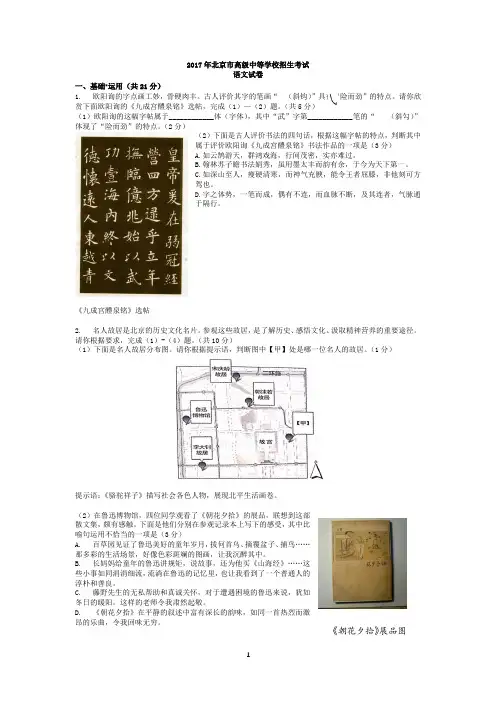 2017年北京市高级中等学校招生考试
语文试卷
一、基础•运用（共21分）
1. 欧阳询的字点画工妙，骨硬肉丰。古人评价其字的笔画“ （斜钩）”具有“险而劲”的特点。请你欣
赏下面欧阳询的《九成宫醴泉铭》选帖，完成（1）—（2）题。（共5分）
（1）欧阳询的这幅字帖属于____________体（字体）。其中“武”字第____________笔的“ （斜勾）”
体现了“险而劲”的特点。（2分）
（2）下面是古人评价书法的四句话，根据这幅字帖的特点，判断其中
属于评价欧阳询《九成宫醴泉铭》书法作品的一项是（3分）
A.如云鹄游天，群鸿戏海，行间茂密，实亦难过。
B.翰林苏子瞻书法娟秀，虽用墨太丰而韵有余，于今为天下第一。
C.如深山至人，瘦硬清寒，而神气充腴，能令王者屈膝，非他刻可方
驾也。
D.字之体势，一笔而成，偶有不连，而血脉不断，及其连者，气脉通
于隔行。
皇帝爰在弱冠经
营四方逮乎立年
抚临亿兆始以武
功壹海内终以文
德怀远人东越青
《九成宫醴泉铭》选帖
2. 名人故居是北京的历史文化名片。参观这些故居，是了解历史、感悟文化、汲取精神营养的重要途径。
请你根据要求，完成（1）-（4）题。（共10分）
（1）下面是名人故居分布图。请你根据提示语，判断图中【甲】处是哪一位名人的故居。（1分）
宋庆龄
故居
二环路
郭沫若
故居
鲁迅
博物馆
【甲】
李大钊
故居
故宫
提示语：《骆驼祥子》描写社会各色人物，展现北平生活画卷。
（2）在鲁迅博物馆，四位同学观看了《朝花夕拾》的展品，联想到这部
散文集，颇有感触。下面是他们分别在参观记录本上写下的感受，其中比
喻句运用不恰当的一项是（3分）
A. 百草园见证了鲁迅美好的童年岁月，拔何首乌、摘覆盆子、捕鸟……
那多彩的生活场景，好像色彩斑斓的图画，让我沉醉其中。
B. 长妈妈给童年的鲁迅讲规矩，说故事，还为他买《山海经》……这
些小事如同涓涓细流，流淌在鲁迅的记忆里，也让我看到了一个普通人的
淳朴和善良。
C. 藤野先生的无私帮助和真诚关怀，对于遭遇困境的鲁迅来说，犹如
冬日的暖阳，这样的老师令我肃然起敬。
D. 《朝花夕拾》在平静的叙述中富有深长的韵味，如同一首热烈而激
昂的乐曲，令我回味无穷。
《朝花夕拾》展品图
1